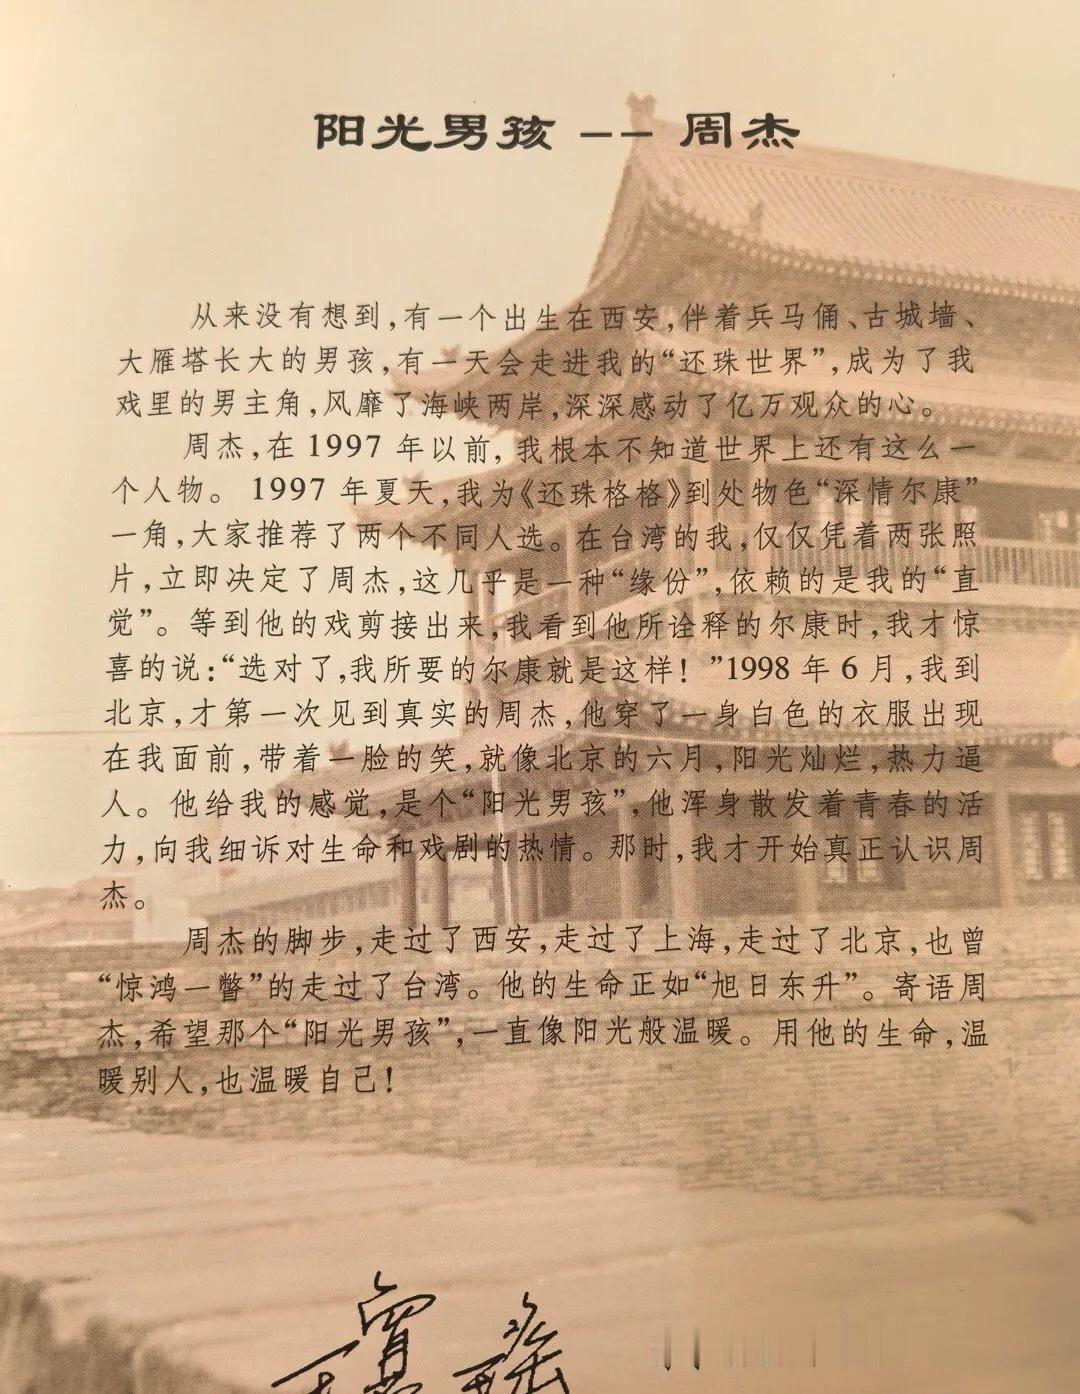 阳光男孩 -- 周杰
从来没有想到，有一个出生在西安，伴着兵马俑、古城墙、
大雁塔长大的男孩，有一天会走进我的“还珠世界”，成为了我
戏里的男主角，风靡了海峡两岸，深深感动了亿万观众的心。
周杰，在 1997 年以前，我根本不知道世界上还有这么一
个人物。 1997 年夏天，我为《还珠格格》到处物色“深情尔康”
一角，大家推荐了两个不同人选。在台湾的我，仅仅凭着两张照
片，立即决定了周杰，这几乎是一种“缘份”，依赖的是我的“直
觉”。等到他的戏剪接出来，我看到他所诠释的尔康时，我才惊
喜的说：“选对了，我所要的尔康就是这样！”1998 年 6 月，我到
北京，才第一次见到真实的周杰，他穿了一身白色的衣服出现
在我面前，带着一脸的笑，就像北京的六月，阳光灿烂，热力逼
人。他给我的感觉，是个“阳光男孩”，他浑身散发着青春的活
力，向我细诉对生命和戏剧的热情。那时，我才开始真正认识周
杰。
周杰的脚步，走过了西安，走过了上海，走过了北京，也曾
“惊鸿一瞥”的走过了台湾。他的生命正如“旭日东升”。寄语周
杰，希望那个“阳光男孩”，一直像阳光般温暖。用他的生命，温
暖别人，也温暖自己！
琼瑶